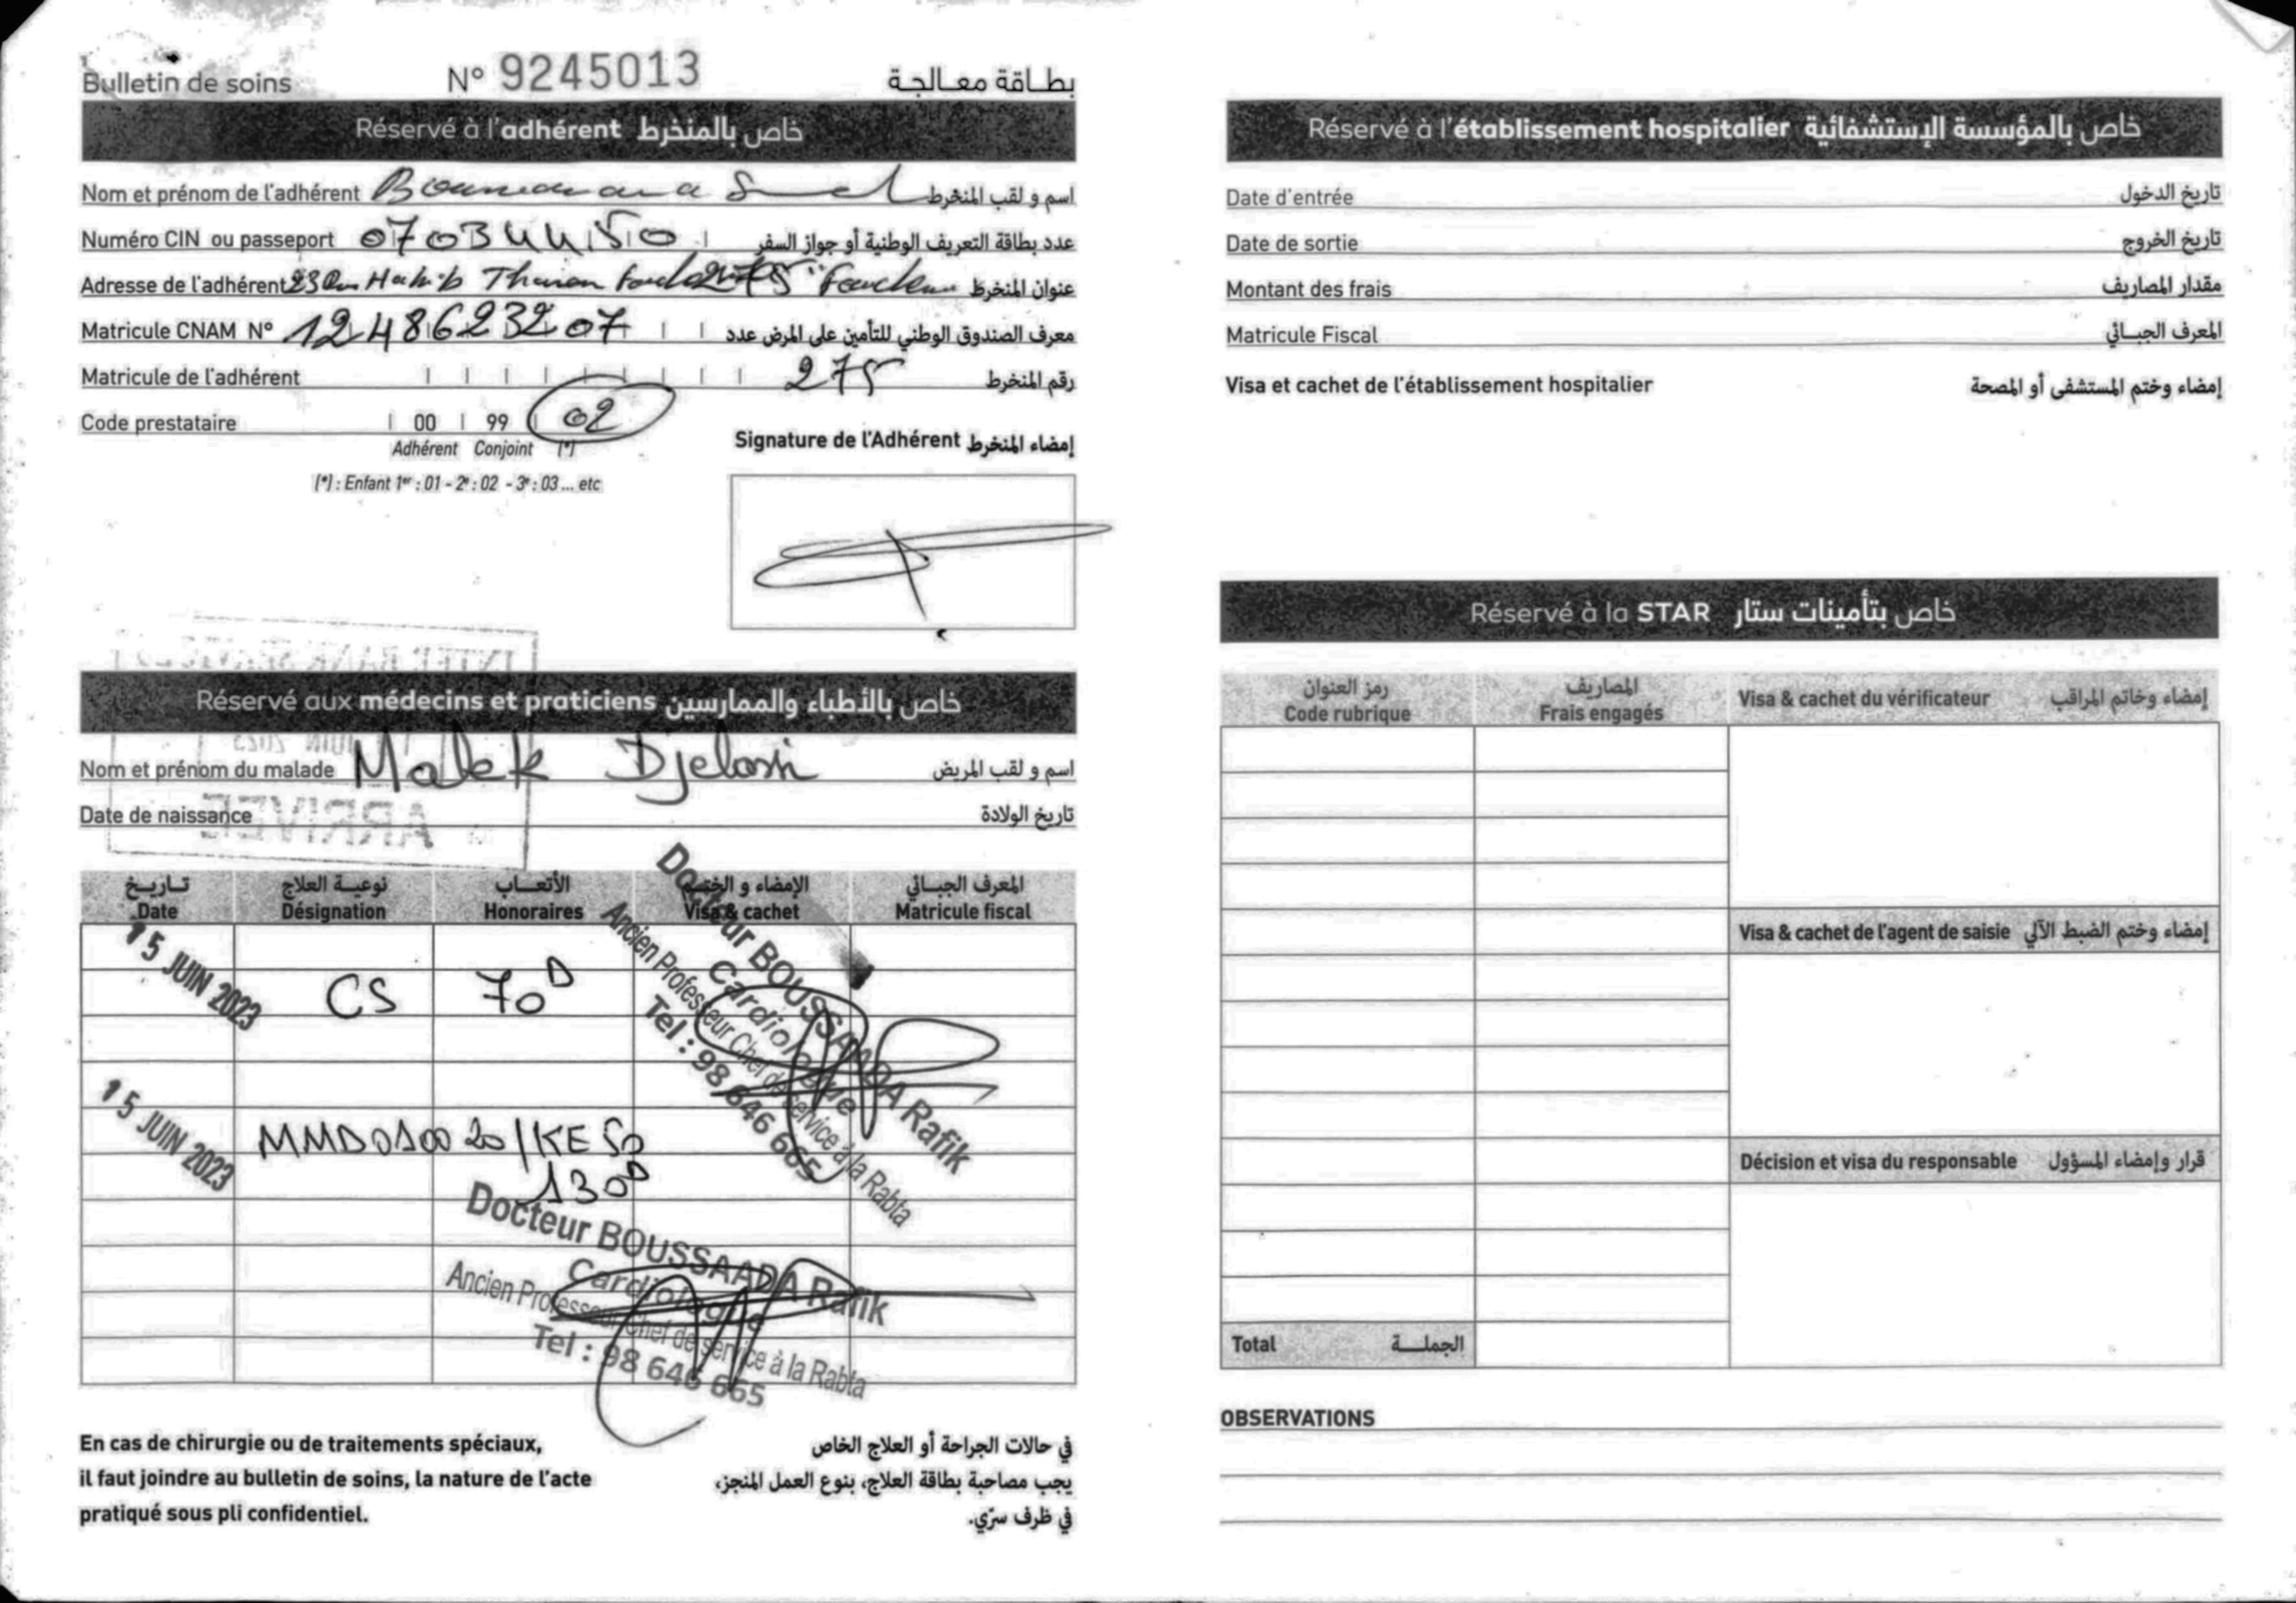 Bulletin de soins N° 9245013 بطاقة معالجة
Réservé à l'adhérent خاص بالمنخرط
Nom et prénom de l'adhérent اسم و لقب المنخرط
Numéro CIN ou passeport 07034450 عدد بطاقة التعريف الوطنية أو جواز السفر
Adresse de l'adhérent 23 Habib عنوان المنخرط
Matricule CNAM N° 1248623207 معرف الصندوق الوطني للتأمين على المرض عدد
Matricule de l'adhérent 275 رقم المنخرط
Code prestataire 00 99 02
Adhérent Conjoint (*)
(*) : Enfant 1er : 01 - 2e : 02 - 3e : 03 ... etc
Signature de l'Adhérent إمضاء المنخرط
Réservé aux médecins et praticiens خاص بالأطباء والممارسين
JUIN 2023
Nom et prénom du malade Malek اسم و لقب المريض
Date de naissance تاريخ الولادة
ARRIVEE
تاريخ نوعية العلاج الأتعاب الإمضاء و الختم المعرف الجبائي
Date Désignation Honoraires Visa & cachet Matricule fiscal
15 JUIN 2023 CS 70D
Docteur BOUSSAADA Rafik
Cardiologue
Ancien Professeur Chef de service à la Rabta
Tel : 98 646 665
15 JUIN 2023 MMD010020/KE50
130D
Docteur BOUSSAADA Rafik
Cardiologue
Ancien Professeur Chef de service à la Rabta
Tel : 98 646 665
En cas de chirurgie ou de traitements spéciaux,
il faut joindre au bulletin de soins, la nature de l'acte
pratiqué sous pli confidentiel.
في حالات الجراحة أو العلاج الخاص
يجب مصاحبة بطاقة العلاج، بنوع العمل المنجز،
في ظرف سرّي.
Réservé à l'établissement hospitalier خاص بالمؤسسة الإستشفائية
Date d'entrée تاريخ الدخول
Date de sortie تاريخ الخروج
Montant des frais مقدار المصاريف
Matricule Fiscal المعرف الجبائي
Visa et cachet de l'établissement hospitalier إمضاء وختم المستشفى أو المصحة
Réservé à la STAR خاص بتأمينات ستار
رمز العنوان المصاريف
Code rubrique Frais engagés Visa & cachet du vérificateur إمضاء وخاتم المراقب
Visa & cachet de l'agent de saisie إمضاء وختم الضبط الآلي
Décision et visa du responsable قرار وإمضاء المسؤول
Total الجملة
OBSERVATIONS